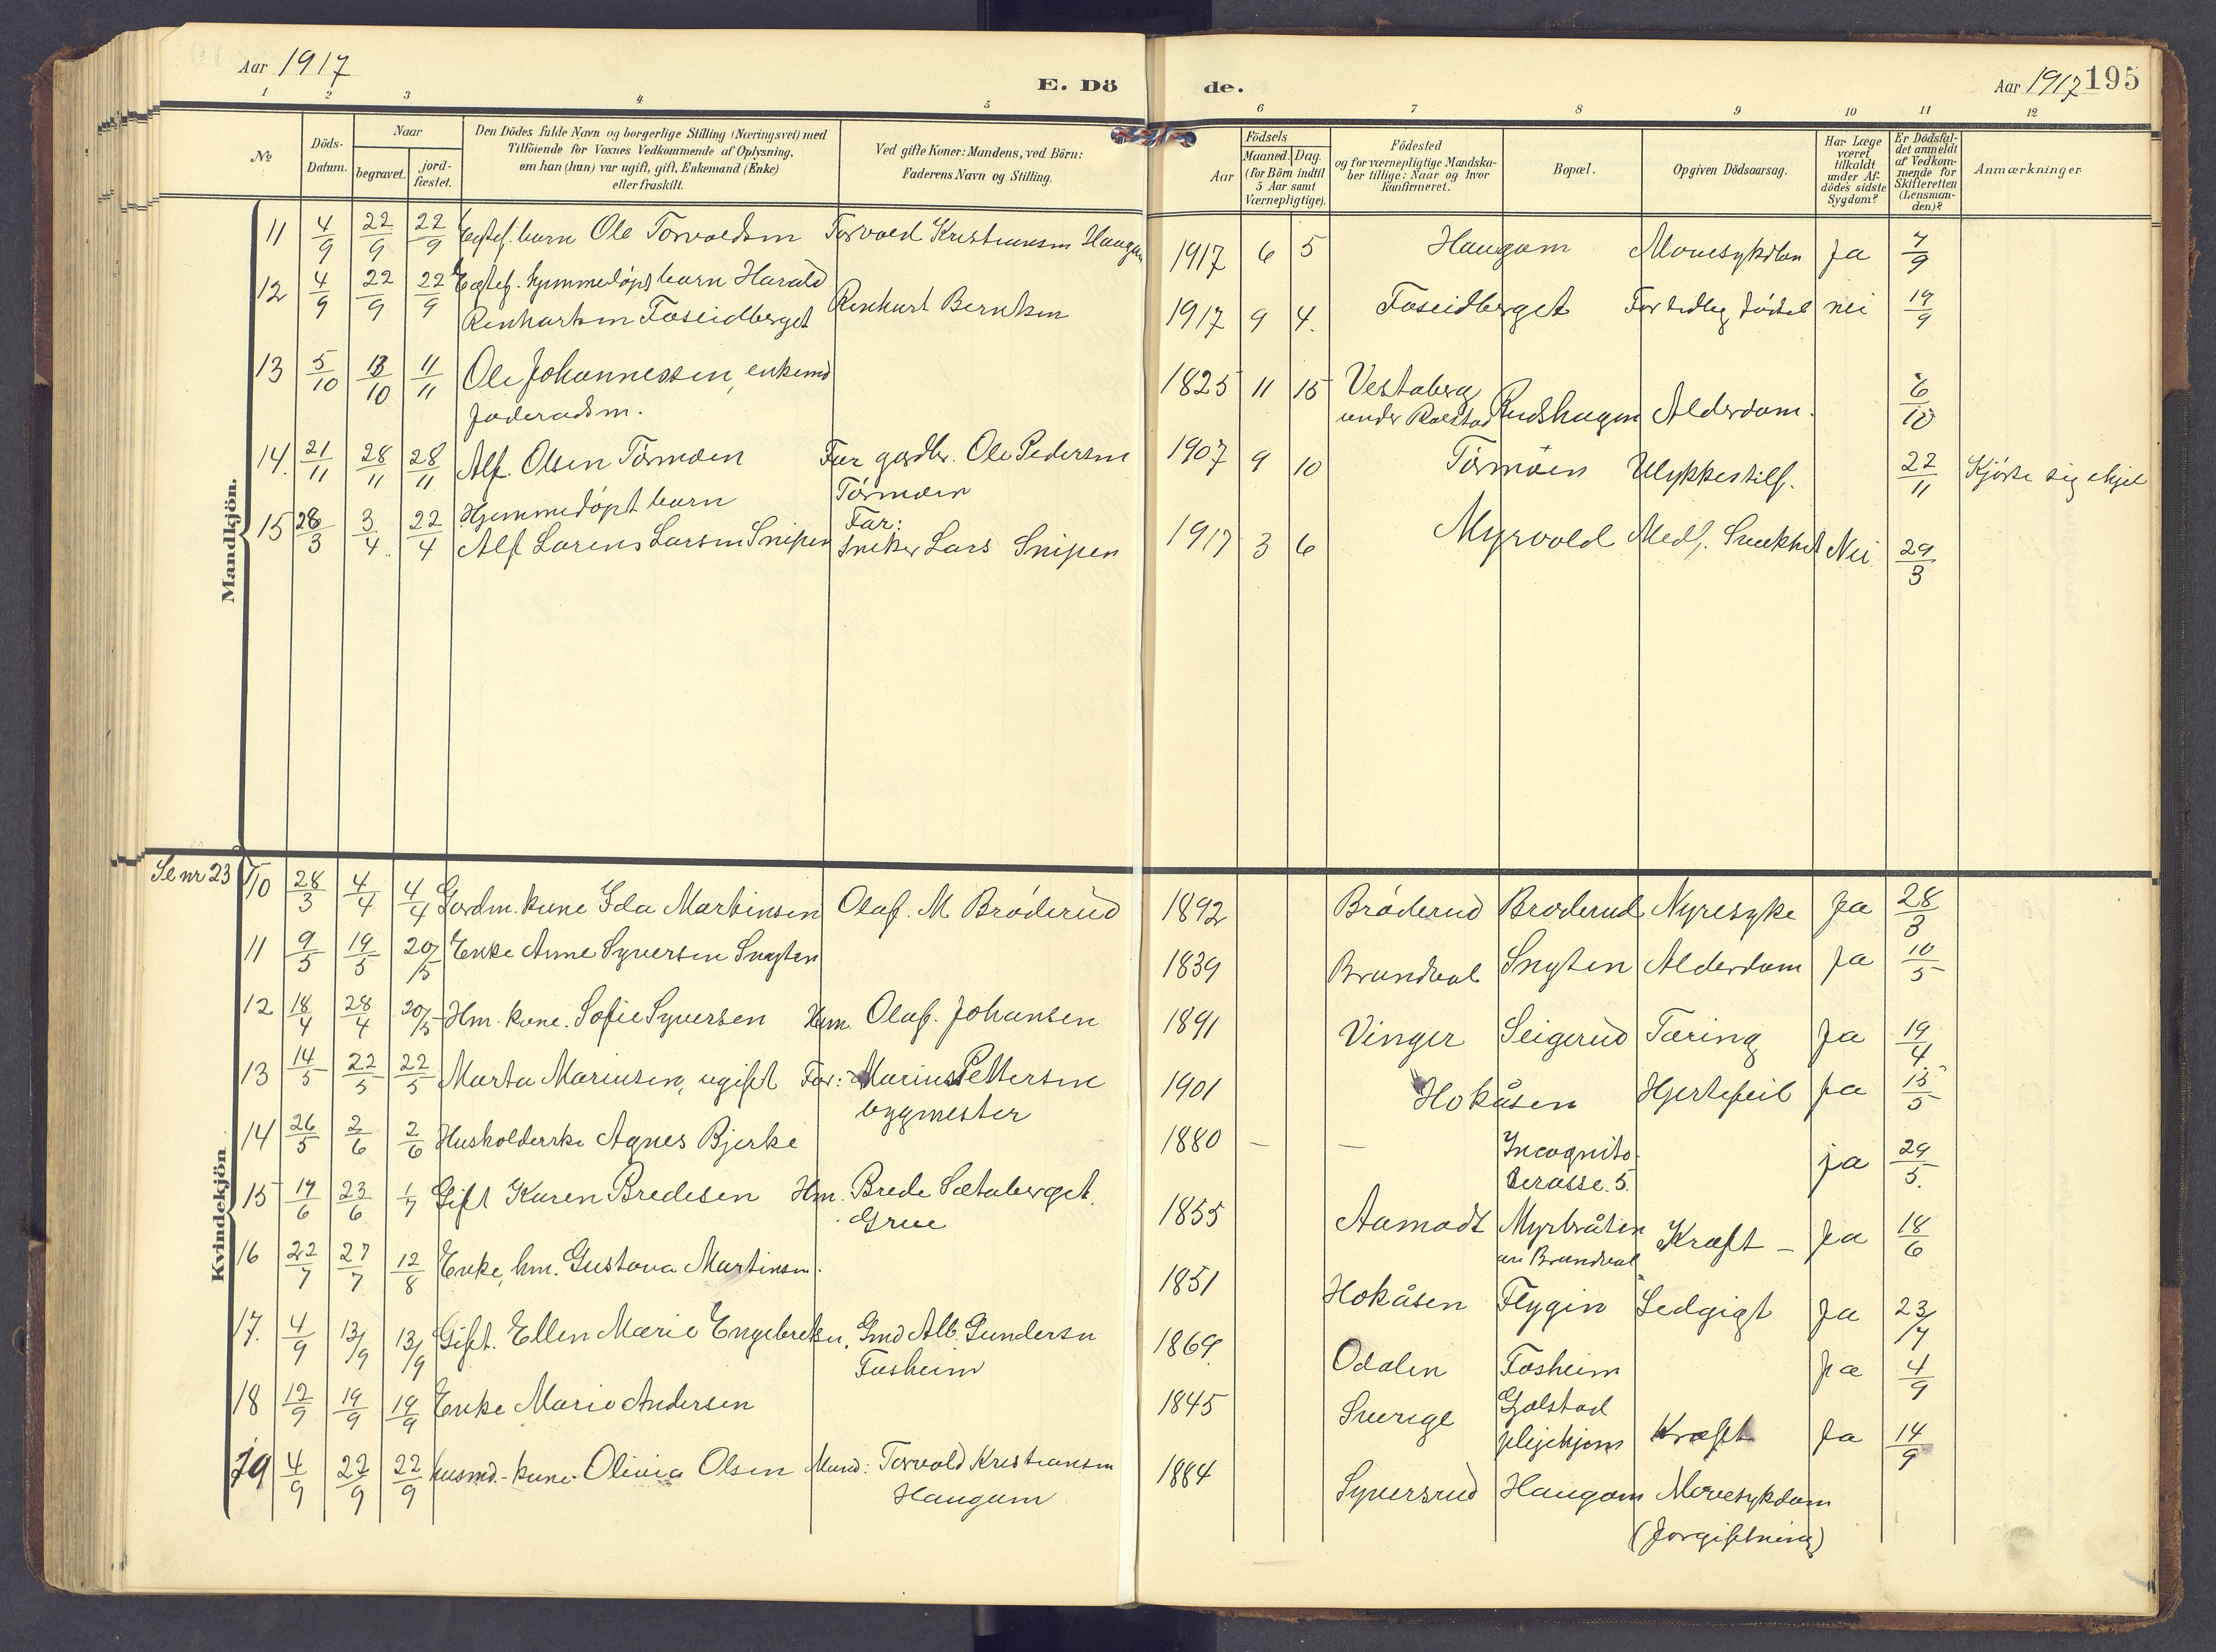 Aar 1917
E. Dö
de.
Aar 1917 195
1 2 3 4 5 6 7 8 9 10 11 12
No
Döds-
Datum.
Naar
begravet.
jord-
fæstet.
Den Dödes fulde Navn og borgerlige Stilling (Næringsvei) med
Tilföiende for Voxnes Vedkommende af Oplysning,
om han (hun) var ugift, gift, Enkemand (Enke)
eller fraskilt.
Ved gifte Koner: Mandens, ved Börn:
Faderens Navn og Stilling.
Födsels
Aar
Maaned. Dag.
(for Börn indtil
5 Aar samt
Værnepligtige).
Födested
og for værnepligtige Mandska-
ber tillige: Naar og hvor
konfirmeret.
Bopæl.
Opgiven Dödsaarsag.
Har Læge
været
tilkaldt
under Af-
dödes sidste
Sygdom?
Er Dödsfal-
det anmeldt
af Vedkom-
mende for
Skifteretten
(Lensman-
den)?
Anmærkninger
Mandkjön.
11 4/9 22/9 22/9 Egtef. barn Ole Torvaldsen Torvald Kristiansen Haugom 1917 6 5 Haugom Mavesykdom Ja 7/9
12 4/9 22/9 22/9 Egtef. hjemmedøpt barn Harald
Renhartsen Foseidberget Renhart Berntsen 1917 9 4. Foseidberget For tidlig fødsel nei 19/9
13 5/10 13/10 11/11 Ole Johannessen, enkemd
foderadsm. 1825 11 15 Vestaberg
under Rolstad Rudshagen Alderdom. 6/10
14. 21/11 28/11 28/11 Alf. Olsen Tørmoen Far gardbr. Ole Pedersen
Tørmoen 1907 9 10 Tørmoen Ulykkestilf. 22/11 Kjørte sig ihjel
15 28/3 3/4 22/4 Hjemmedøpt barn
Alf Lorens Larsen Snipen Far:
Sneker Lars Snipen 1917 3 6 Myrvold Medf. Svakhet Nei 29/3
Kvindekjön
Se nr 23 10 28/3 4/4 4/4 Gardm. kone Ida Martinsen Olaf. M. Brøderud 1892 Brøderud Broderud Nyresyke Ja 28/3
11 9/5 19/5 20/5 Enke Anne Syversen Snyten 1839 Brandval Snyten Alderdom Ja 10/5
12 18/4 28/4 20/5 Hm. kone. Sofie Syversen Hm. Olaf. Johansen 1891 Vinger Seigerud Tæring Ja 19/4
13 14/5 22/5 22/5 Marta Mariusen, ugift Far: Marius Pettersen
bygmester 1901 Hokåsen Hjertefeil Ja 15/5
14 26/5 2/6 2/6 Husholderske Agnes Bjerke 1880 — — Incognito
terasse. 5. ja 29/5.
15 17/6 23/6 1/7 Gift Karen Bredesen Hm. Brede Sætaberget.
Grue 1855 Aamodt Myrbråten
Brandval Kræft — Ja 18/6
16 22/7 27/7 12/8 Enke, hm. Gustava Martinsen. 1851 Hokåsen Flygin Ledgigt Ja 23/7
17. 4/9 13/9 13/9 Gift. Ellen Marie Engebretsen, Gmd Alb. Gundersen
Fosheim 1869. Odalen Fosheim Ja 4/9
18 12/9 19/9 19/9 Enke Marie Andersen 1845 Sverige Gjølstad
pleiehjem Kræft Ja 14/9
19 4/9 22/9 22/9 husmd. kone. Olivia Olsen Mand: Torvald Kristiansen
Haugom 1884 Syversrud Haugom Mavesykdom
(forgiftning)